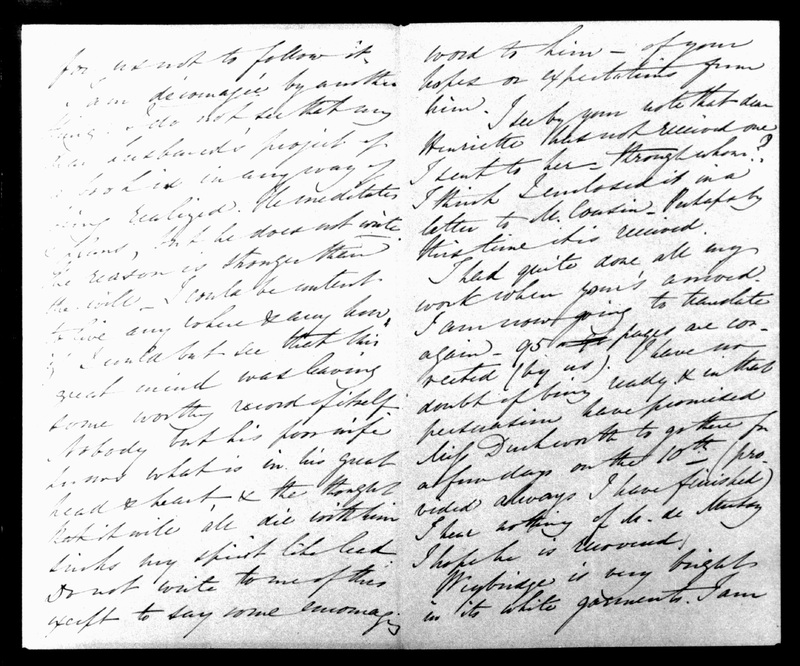 for us not to follow it.
I am découragée by another
thing. I do not see that my
dear husband's project of
a book is in any way of
being realized. He meditates
, but he does not write
the reason is stronger than
the will. I could be content
to live any where & any how,
if I could but see that this
great mind was leaving
some worthy record of itself.
Nobody but his poor wife
knows what is in his great
head & heart, & the thought
that it will all die with him
sinks my spirit like lead
Do not write to me of this
except to say some encouraging
word to him – of your
hopes or expectations from
him. I see by your note that dear
Henriette has not received one
I sent to her – through whom?
I think I enclosed it in a
letter to M. Cousin – Perhaps by
this time it is received.
I had quite done all my
work when your's arrived.
I am now going to translate
again – 95 pages are cor-
rected (by us). I have no
doubt of being ready & in that
persuasion have promised
Miss Duckworth to go there for
a few days on the 10th (pro-
vided always I have finished)
I hear nothing of M. de Mussy
I hope he is recovered,
Weybridge is very bright
in its white garments. I am